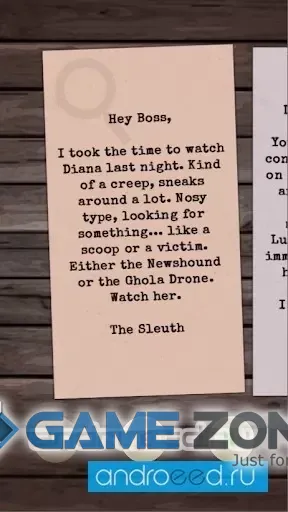 Hey Boss,
I took the time to watch
Diana last night. Kind
of a creep, sneaks
around a lot. Nosy
type, looking for
something... like a
scoop or a victim.
Either the Newshound
or the Ghola Drone.
Watch her.
The Sleuth
Yo
con
on
a
Lu
imm
h
I
GAME ZON
Just fo
androeed.ru